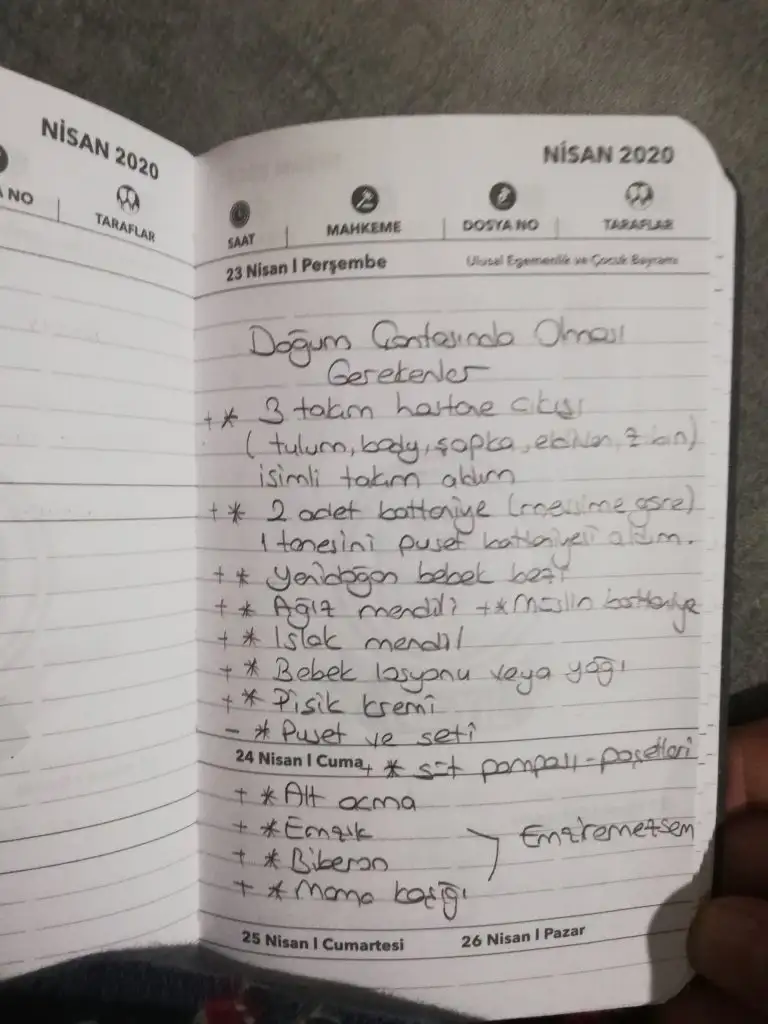 NİSAN 2020
NO
TARAFLAR
NİSAN 2020
SAAT
MAHKEME
DOSYA NO
TARAFLAR
23 Nisan | Perşembe
Ulusal Egemenlik ve Çocuk Bayramı
Doğum Çantasında Olması
Gerekenler
+ * 3 takım hastane çıkışı
( tulum, body, şapka,
isimli takım aldım
+ * 2 adet battaniye (mevsime göre)
1 tanesini puset battaniyesi aldım.
+ * Yenidoğan bebek bezi
+ * Ağız mendili + * Müslin battaniye
+ * Islak mendil
+ * Bebek losyonu veya yağı
+ * Pişik kremi
- * Puset ve seti
24 Nisan | Cuma
+ * süt pompası - poşetleri
+ * Alt açma
+ * Emzik
+ * Biberon
Emziremezsem
+ * Mama kaşığı
25 Nisan | Cumartesi
26 Nisan | Pazar